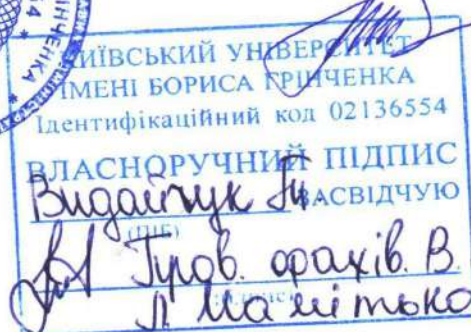 КИЇВСЬКИЙ УНІВЕРСИТЕТ
ІМЕНІ БОРИСА ГРІНЧЕНКА
Ідентифікаційний код 02136554
ВЛАСНОРУЧНИЙ ПІДПИС
Видайчук
ЗАСВІДЧУЮ
(ПІБ)
Пров. фахів. В.